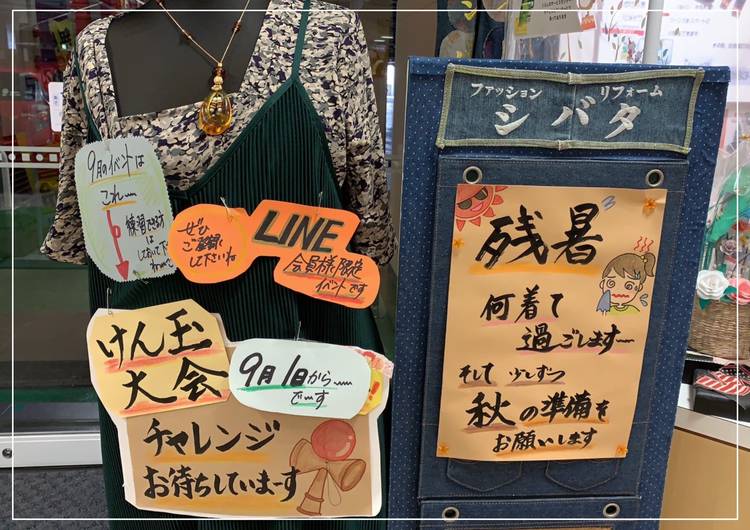 9月のイベントは
これ〜
練習できる方
は
しておいて下
ぜひ
ご登録
して下さいね
LINE
会員様限定
イベントです
けん玉
大会
9月1日から〜
で〜す
チャレンジ
お待ちしていまーす
ファッション リフォーム
シバタ
残暑
何着て
過ごします〜
そして 少しずつ
秋の準備を
お願いします